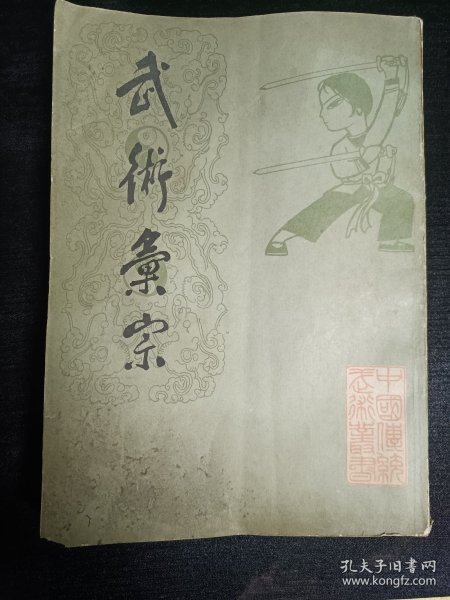 武術彙宗
中國傳統
武術叢書
孔夫子旧书网
www.kongfz.com